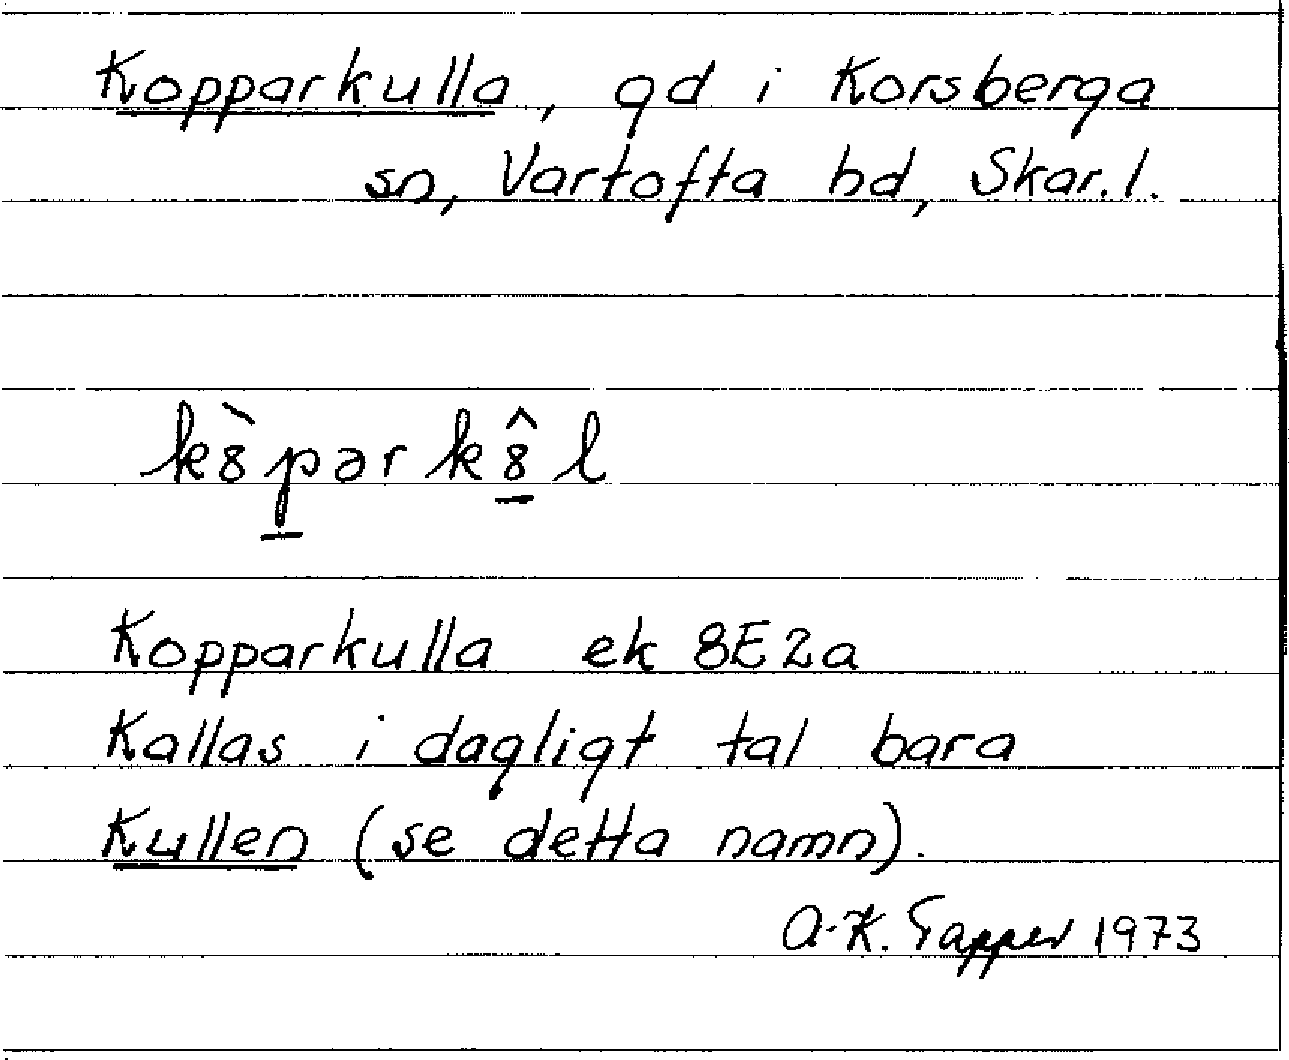 Kopparkulla, gd i Korsberga
sn, Vartofta hd, Skar. l.
kȣ̀pərkȣ̂l
Kopparkulla ek 8E2a
Kallas i dagligt tal bara
Kullen (se detta namn).
A-K. Tapper 1973